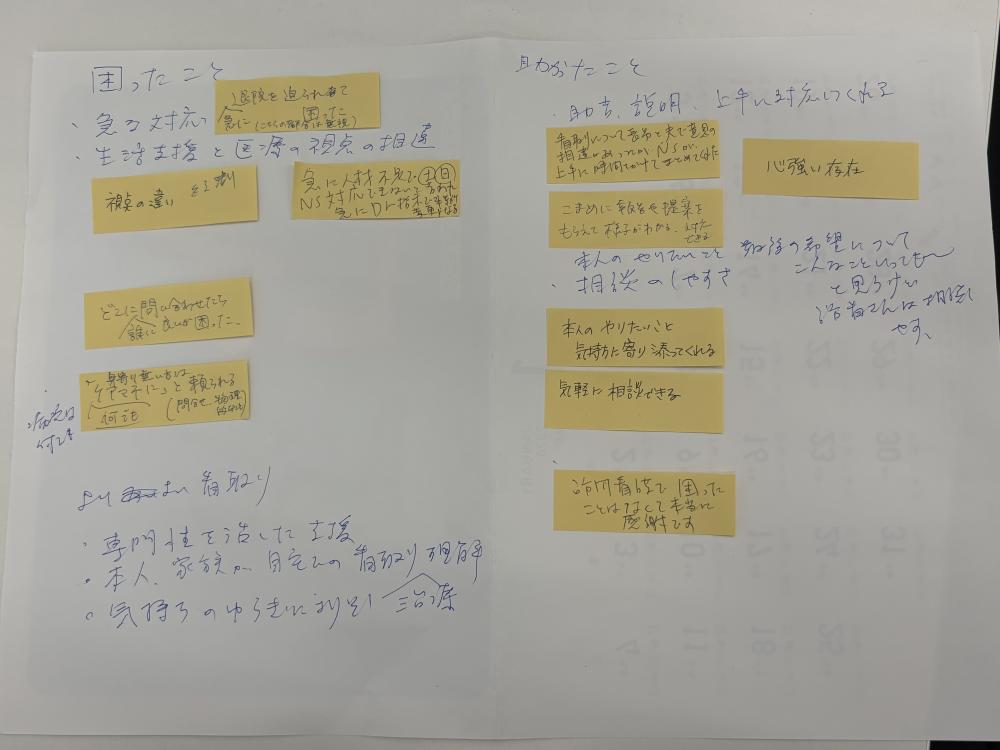 困ったこと
退院を迫られ慌て
急に 困った
(こちらの都合は無視)
・急な対応
・生活支援と医療の視点の相違
視点の違い 役割
急に人材不足で土日
NS対応できないと言われ
急にDr指示で
どこに問い合わせたら
誰に 良いか困った。
身寄り無い方は
「ケアマネに」と頼られる
何でも (問合せ、物理的
何でも
より 良い 看取り
・専門性を活した支援
・本人、家族が自宅での看取り理解
・気持ちのゆらぎに寄り添い
助かったこと
・助言、説明、上手に対応してくれる
看取りについて長男と夫で意見の
相違があったが、NSが、
上手に時間をかけてまとめてくれた
心強い存在
こまめに報告や提案を
もらえて様子がわかる、対応
できる
本人のやりたいこと
・相談のしやすさ
最後の希望について
こんなこといっても〜
と見うけい
は相談し
やす、
本人のやりたいこと
気持ちに寄り添ってくれる
気軽に相談できる
訪問看護で困った
ことはなくて本当に
感謝です